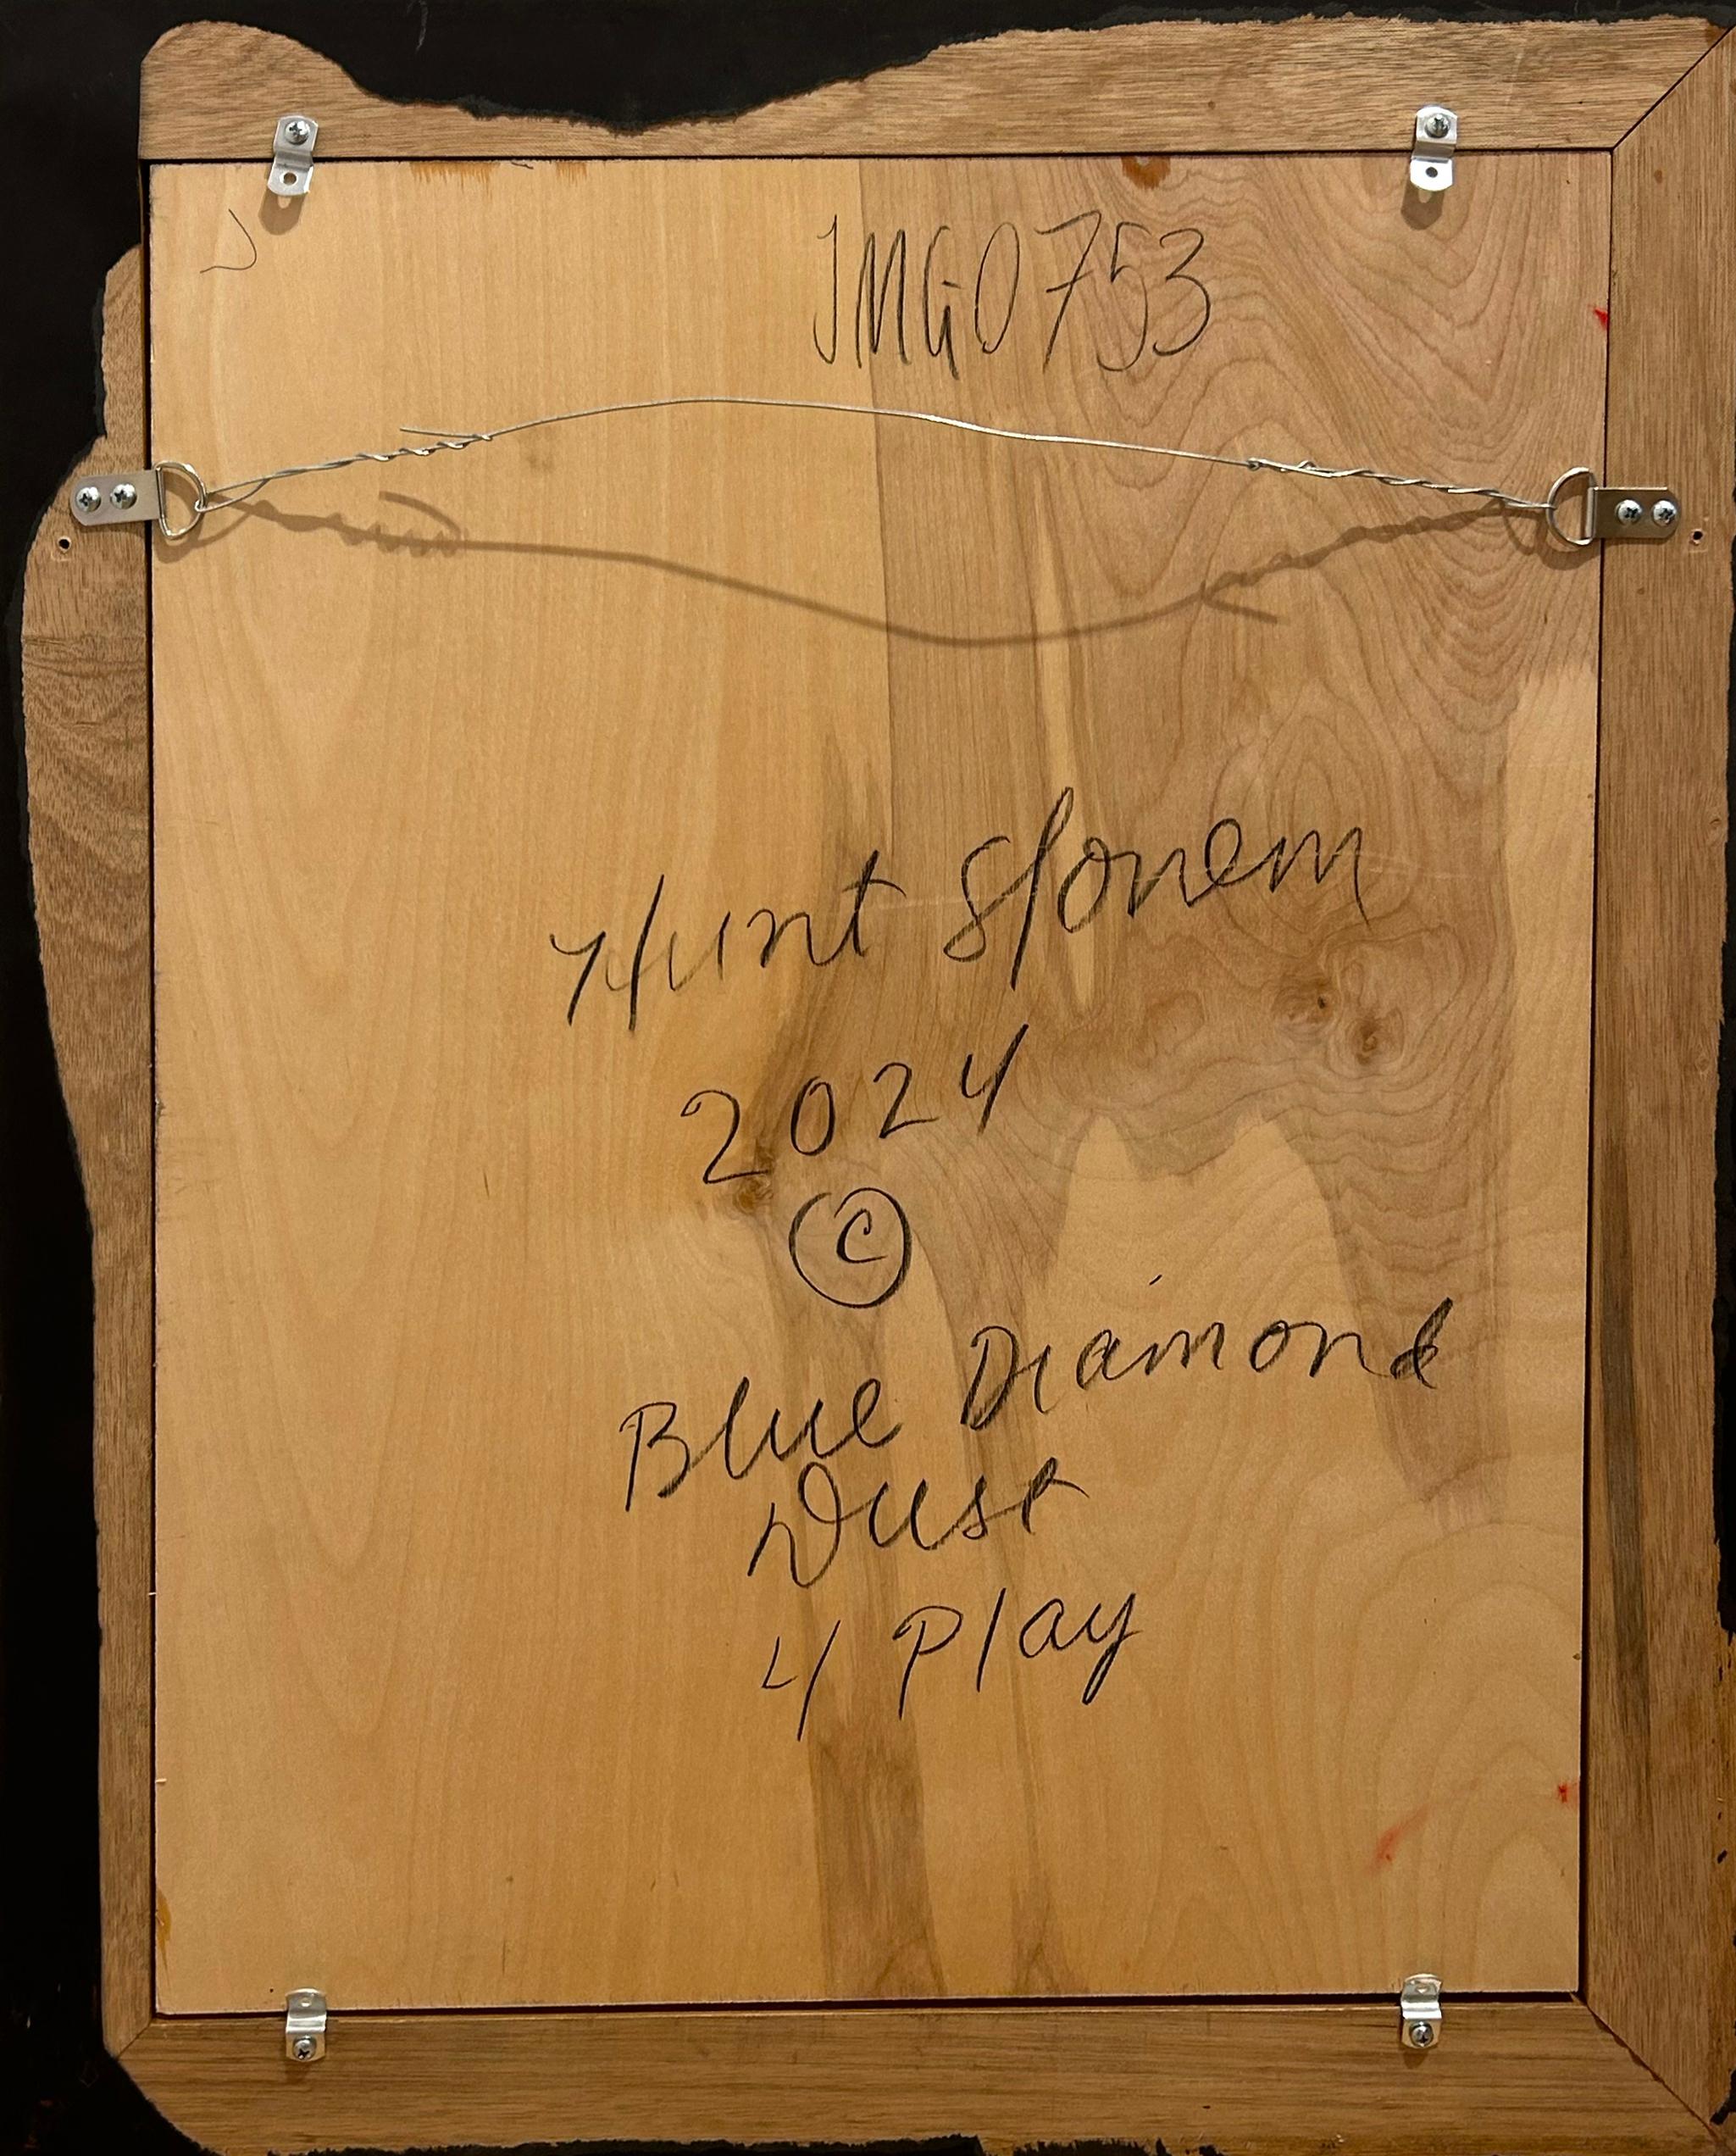 JMG0753
Hunt Slonem
2024
©
Blue Diamond
Dust
4 Play